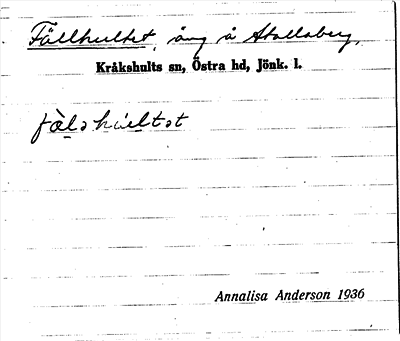 Fällhultet, äng å Stallaberg,
Kråkshults sn, Östra hd, Jönk. l.
fàləhúltət
Annalisa Anderson 1936